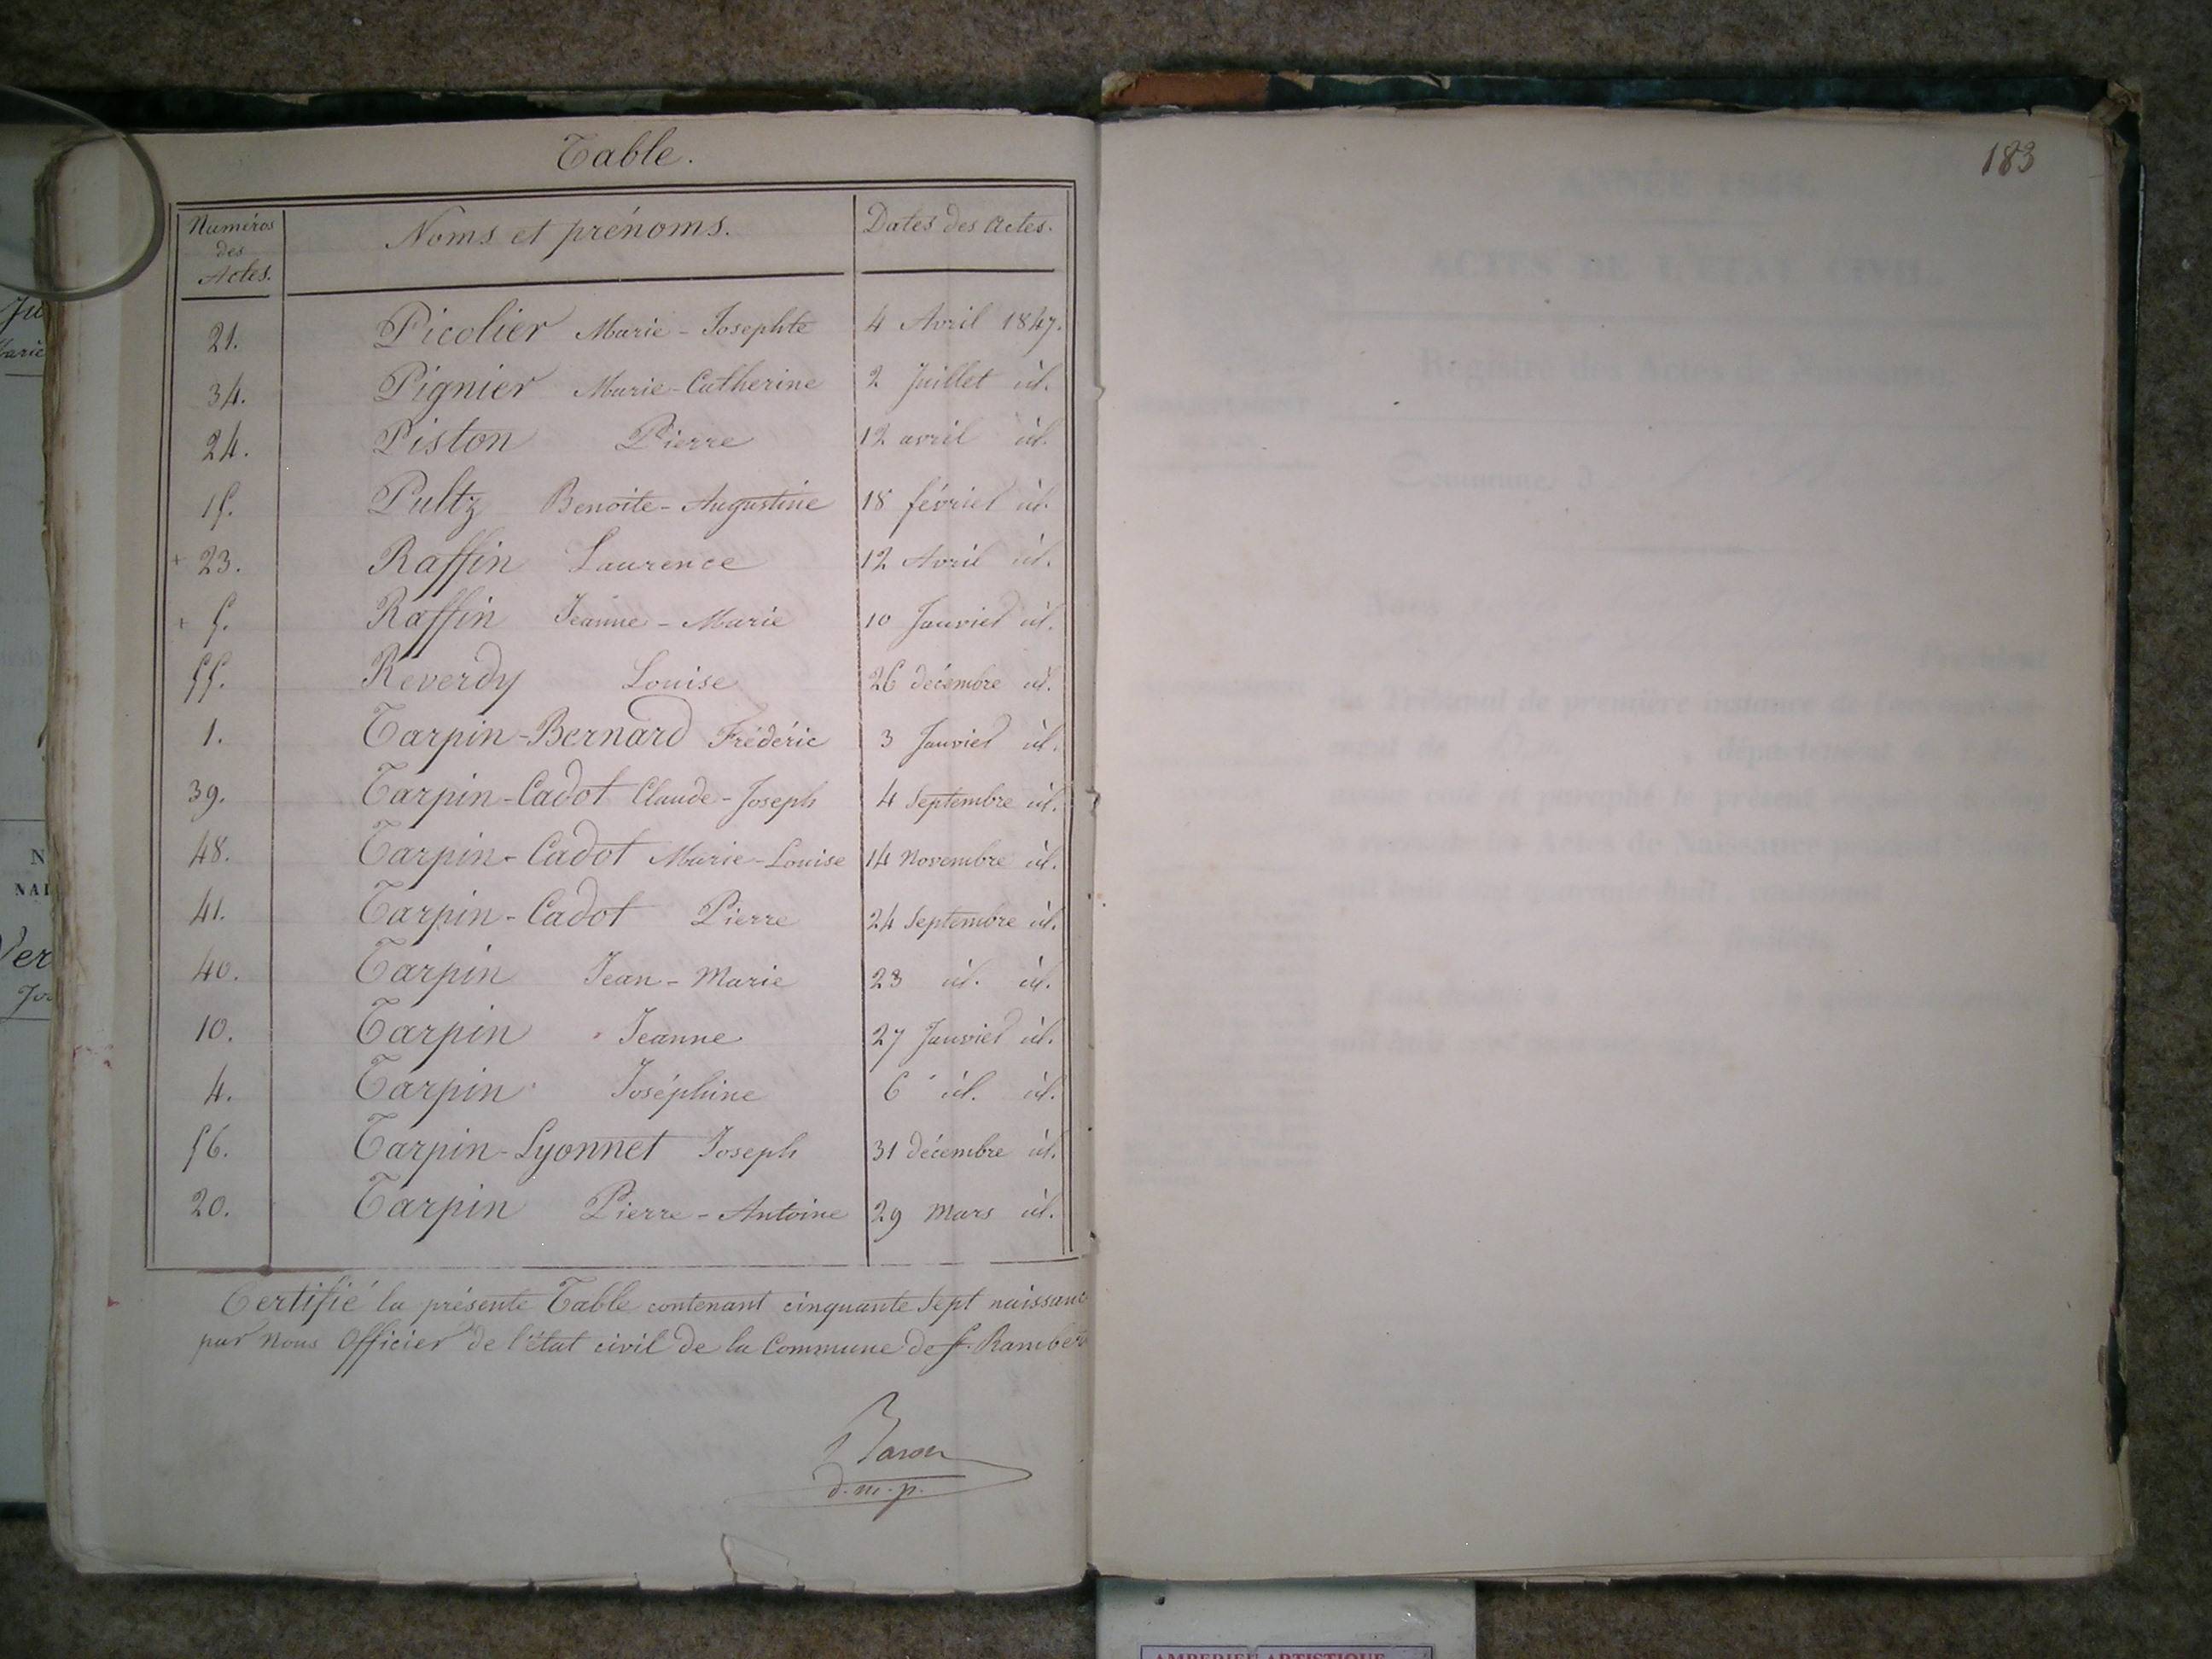 Table.
Numéros des Actes. Noms et prénoms. Dates des Actes.
21. Picolier Marie-Josephte 4 Avril 1847.
34. Pignier Marie-Catherine 2 Juillet id.
24. Piston Pierre 12 avril id.
15. Pultz Benoite-Augustine 18 février id.
+ 23. Raffin Laurence 12 Avril id.
+ 5. Raffin Jeanne-Marie 10 Janvier id.
55. Reverdy Louise 26 décembre id.
1. Tarpin-Bernard Frédéric 3 Janvier id.
39. Tarpin-Cadot Claude-Joseph 4 Septembre id.
48. Tarpin-Cadot Marie-Louise 14 Novembre id.
41. Tarpin-Cadot Pierre 24 Septembre id.
40. Tarpin Jean-Marie 23 id. id.
10. Tarpin Jeanne 27 Janvier id.
4. Tarpin Joséphine 6 id. id.
56. Tarpin-Lyonnet Joseph 31 décembre id.
20. Tarpin Pierre-Antoine 29 Mars id.
Certifié la présente Table contenant cinquante sept naissanc
par Nous Officier de l'état civil de la Commune de St. Rambert
d.m.p.
183
ANNÉE
ACTES DE L'ÉTAT CIVIL.
Registre des Actes de Naissance.
Commune d
Nous
Tribunal de première instance de
département de
Actes de Naissance
AMBERIEU ARTISTIQUE